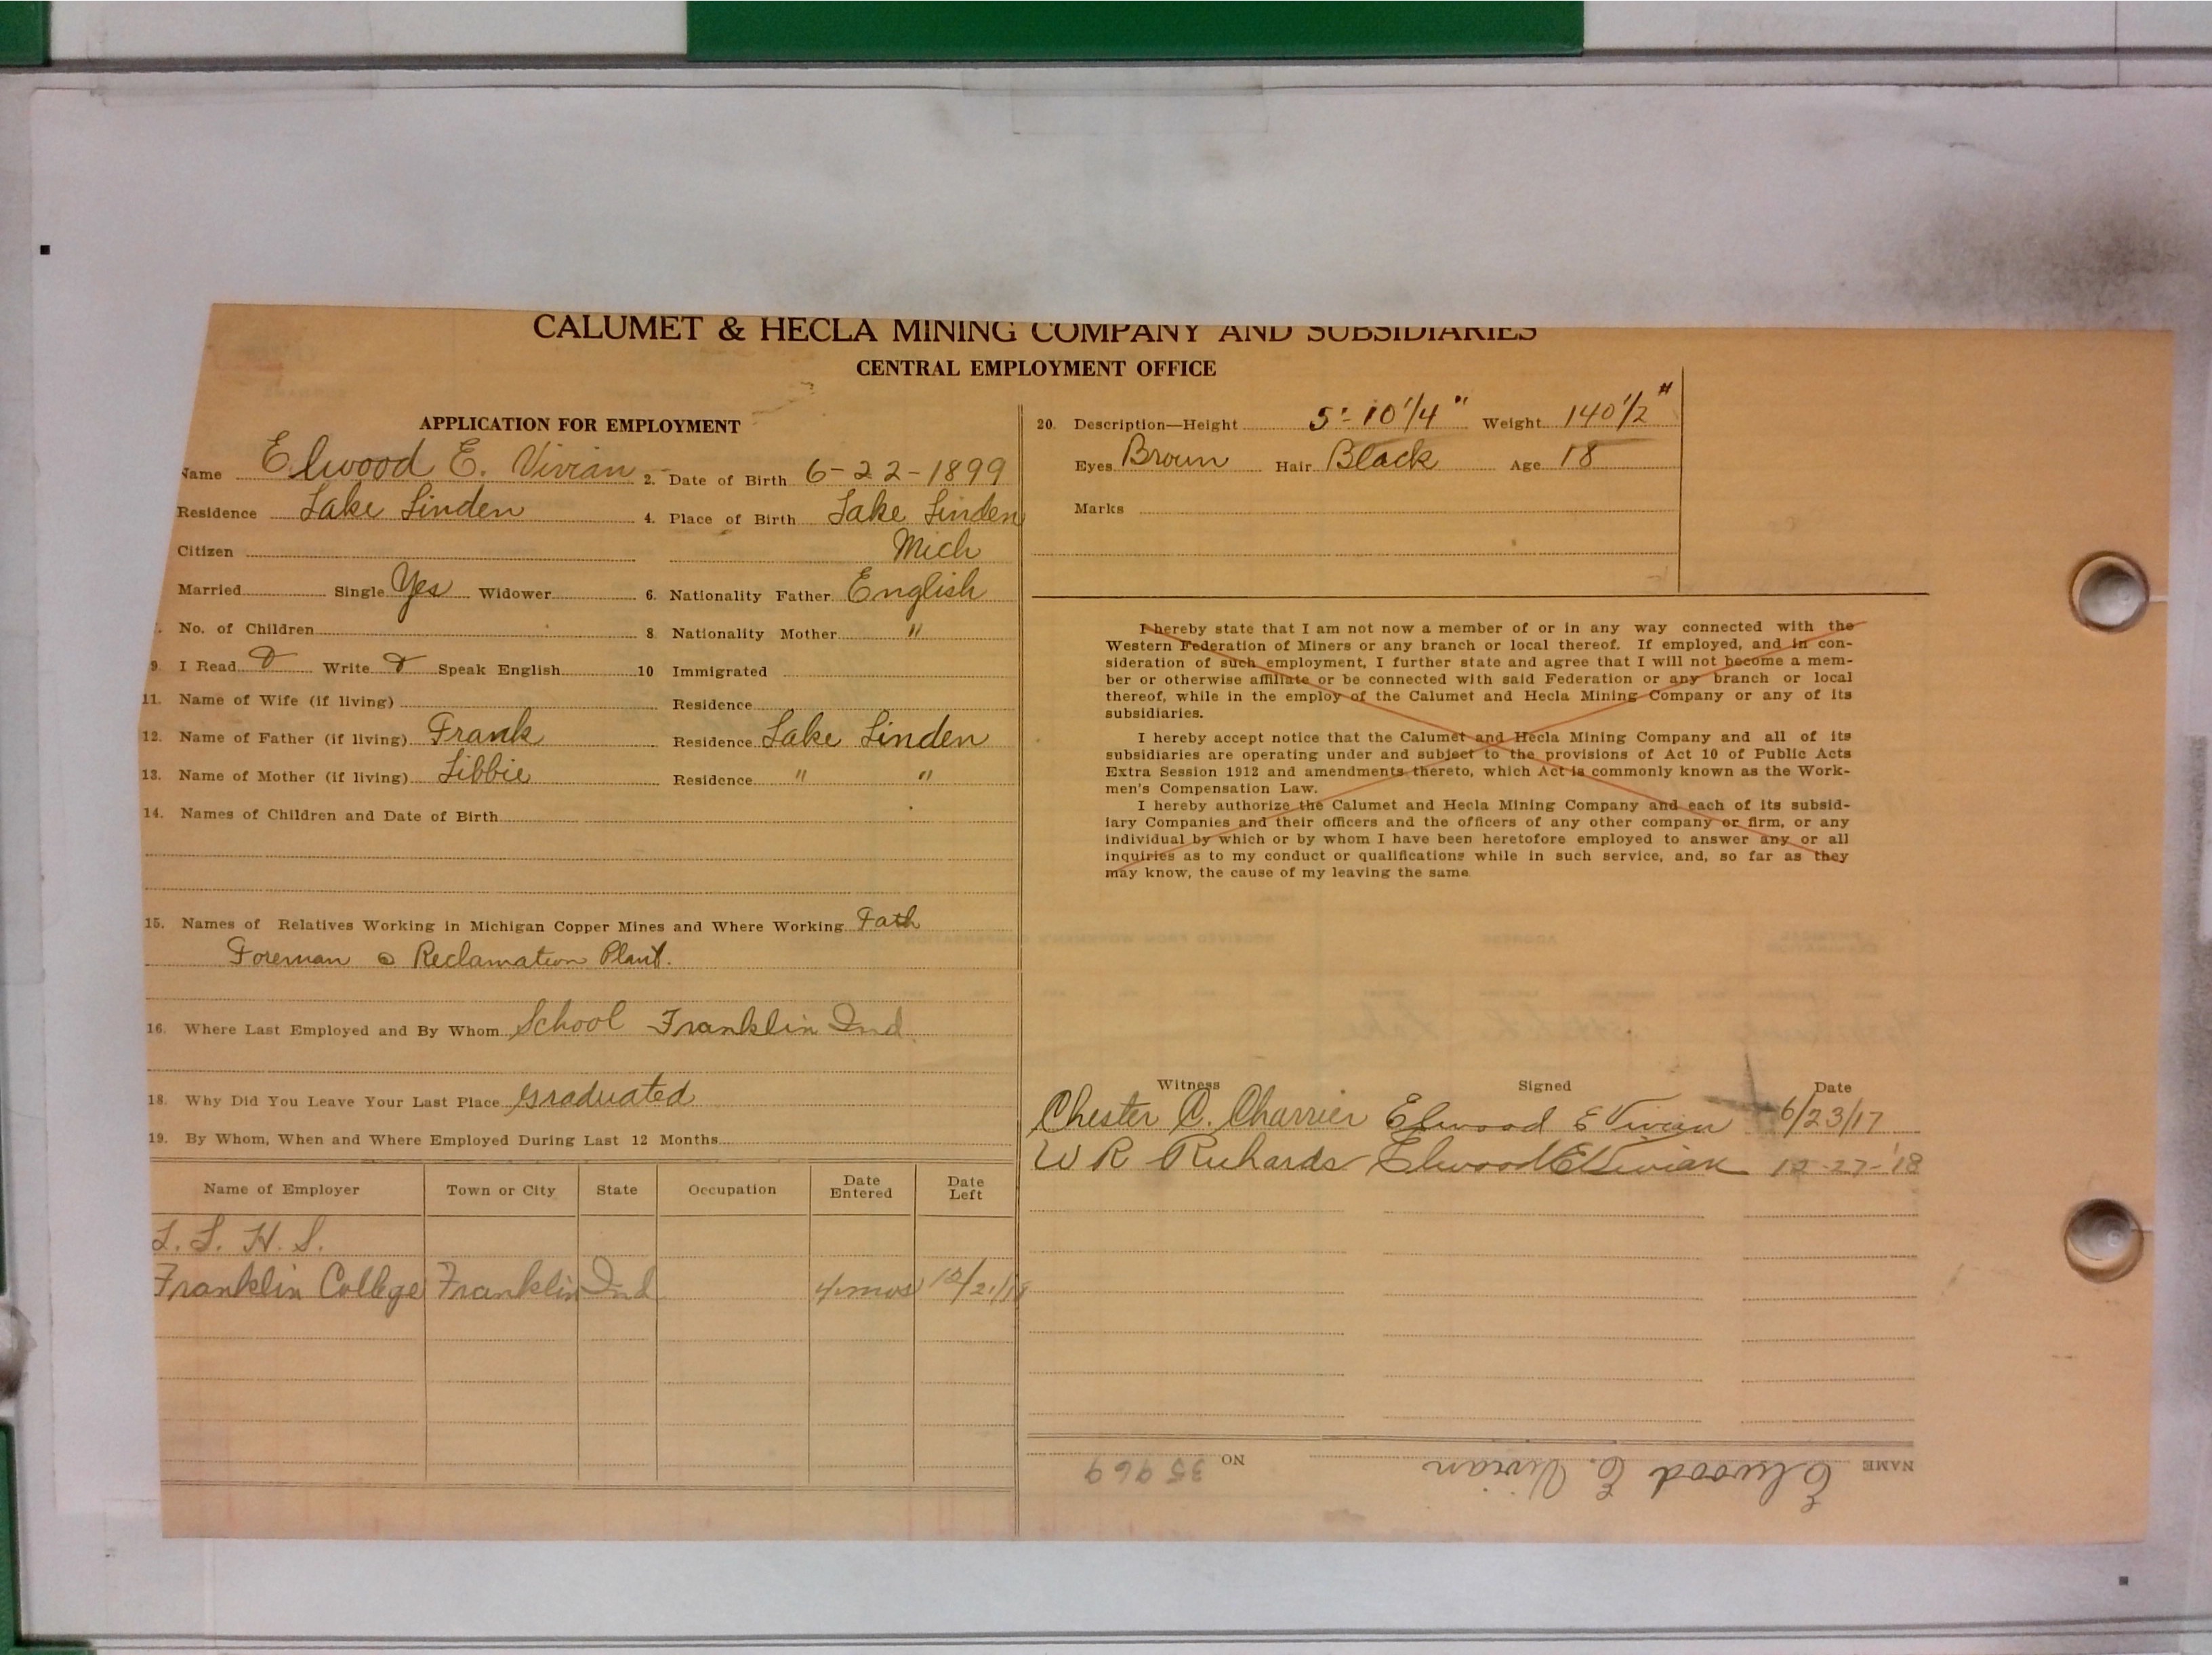 CALUMET & HECLA MINING COMPANY AND SUBSIDIARIES
CENTRAL EMPLOYMENT OFFICE
APPLICATION FOR EMPLOYMENT
Name Elwood E. Vivian 2. Date of Birth 6-22-1899
Residence Lake Linden 4. Place of Birth Lake Linden
Citizen Mich
Married Single Yes Widower 6. Nationality Father English
7. No. of Children 8 Nationality Mother "
9. I Read Write Speak English 10 Immigrated
11. Name of Wife (if living) Residence
12. Name of Father (if living) Frank Residence Lake Linden
13. Name of Mother (if living) Libbie Residence " "
14. Names of Children and Date of Birth
15. Names of Relatives Working in Michigan Copper Mines and Where Working Fath
Foreman @ Reclamation Plant.
16. Where Last Employed and By Whom School Franklin Ind
18. Why Did You Leave Your Last Place graduated
19. By Whom, When and Where Employed During Last 12 Months
Name of Employer Town or City State Occupation Date Entered Date Left
L. L. H. S.
Franklin College Franklin Ind 4 mos 12/21/18
20. Description—Height 5'-10 1/4" Weight 140 1/2 "
Eyes Brown Hair Black Age 18
Marks
I hereby state that I am not now a member of or in any way connected with the
Western Federation of Miners or any branch or local thereof. If employed, and in con-
sideration of such employment, I further state and agree that I will not become a mem-
ber or otherwise affiliate or be connected with said Federation or any branch or local
thereof, while in the employ of the Calumet and Hecla Mining Company or any of its
subsidiaries.
I hereby accept notice that the Calumet and Hecla Mining Company and all of its
subsidiaries are operating under and subject to the provisions of Act 10 of Public Acts
Extra Session 1912 and amendments thereto, which Act is commonly known as the Work-
men's Compensation Law.
I hereby authorize the Calumet and Hecla Mining Company and each of its subsid-
iary Companies and their officers and the officers of any other company or firm, or any
individual by which or by whom I have been heretofore employed to answer any or all
inquiries as to my conduct or qualifications while in such service, and, so far as they
may know, the cause of my leaving the same
Witness Signed Date
Chester C. Charrier Elwood E Vivian 6/23/17
W R Richards Elwood E Vivian 12-27-'18
NAME Elwood E. Vivian NO 35969